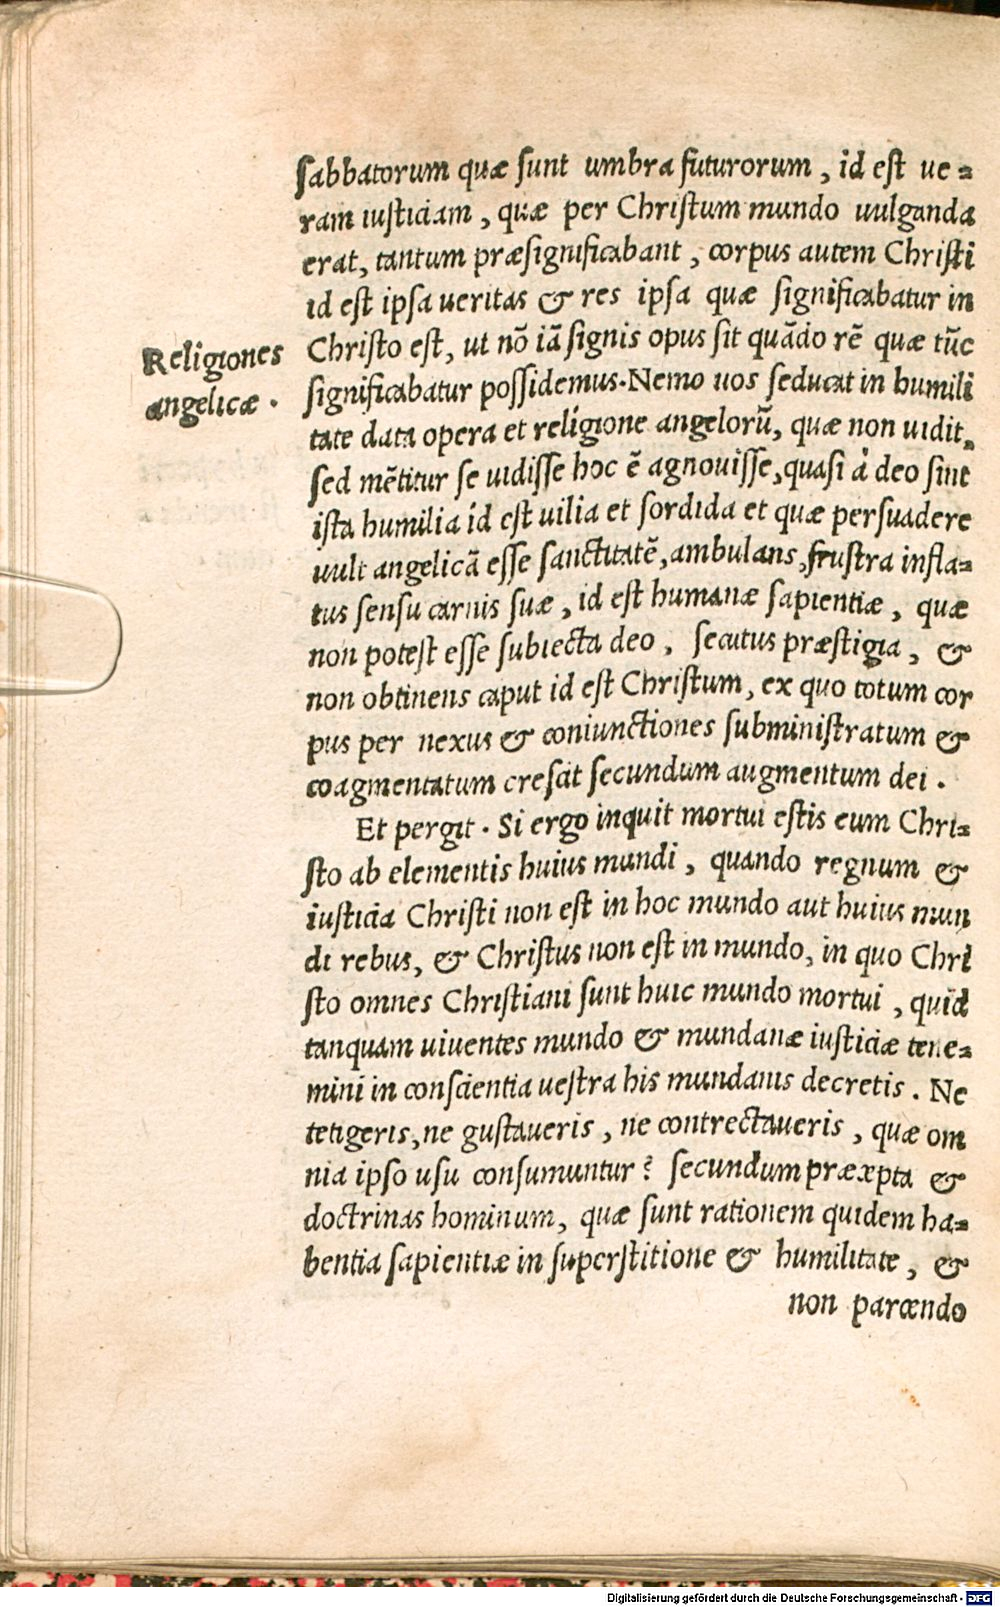 sabbatorum quæ sunt umbra futurorum, id est ue-
ram iusticiam, quæ per Christum mundo uulganda
erat, tantum præsignificabant, corpus autem Christi
id est ipsa ueritas & res ipsa quæ significabatur in
Religiones
angelicæ.
Christo est, ut nō iā signis opus sit quādo rē quæ tūc
significabatur possidemus. Nemo uos seducat in humili
tate data opera et religione angelorū, quæ non uidit,
sed mētitur se uidisse hoc ē agnouisse, quasi à deo sint
ista humilia id est uilia et sordida et quæ persuadere
uult angelicā esse sanctitatē, ambulans, frustra infla-
tus sensu carnis suæ, id est humanæ sapientiæ, quæ
non potest esse subiecta deo, secutus præstigia, &
non obtinens caput id est Christum, ex quo totum cor
pus per nexus & coniunctiones subministratum &
coagmentatum crescit secundum augmentum dei.
Et pergit. Si ergo inquit mortui estis cum Chri-
sto ab elementis huius mundi, quando regnum &
iusticia Christi non est in hoc mundo aut huius mun
di rebus, & Christus non est in mundo, in quo Chri
sto omnes Christiani sunt huic mundo mortui, quid
tanquam uiuentes mundo & mundanæ iusticiæ tene-
mini in conscientia uestra his mundanis decretis. Ne
tetigeris, ne gustaueris, ne contrectaueris, quæ om
nia ipso usu consumuntur? secundum præcepta &
doctrinas hominum, quæ sunt rationem quidem ha-
bentia sapientiæ in superstitione & humilitate, &
non parcendo
Digitalisierung gefördert durch die Deutsche Forschungsgemeinschaft - DFG